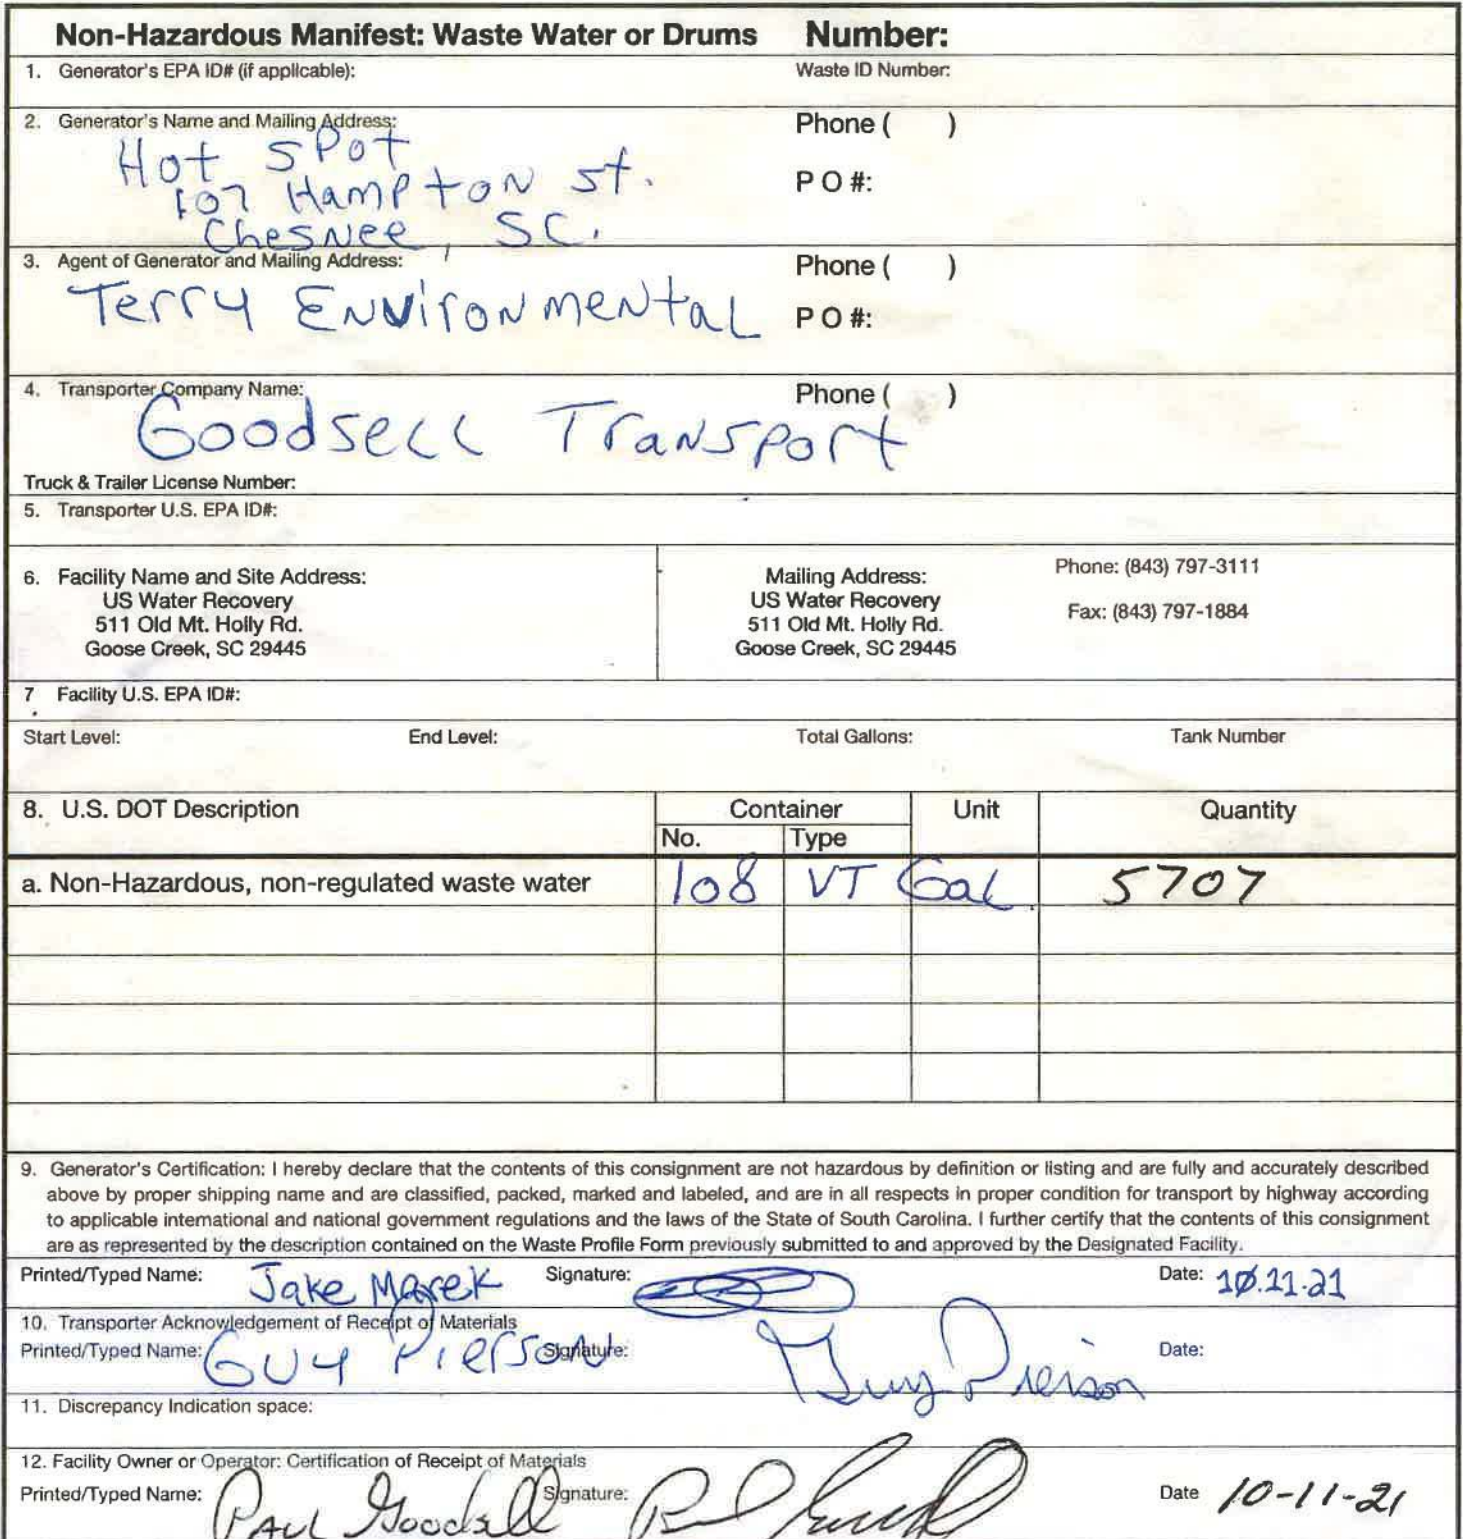 Non-Hazardous Manifest: Waste Water or Drums Number:
1. Generator's EPA ID# (if applicable): Waste ID Number:
2. Generator's Name and Mailing Address: Phone ( )
Hot Spot
107 Hampton St. P O #:
Chesnee, SC.
3. Agent of Generator and Mailing Address: Phone ( )
Terry Environmental P O #:
4. Transporter Company Name: Phone ( )
Goodsell Transport
Truck & Trailer License Number:
5. Transporter U.S. EPA ID#:
6. Facility Name and Site Address: Mailing Address: Phone: (843) 797-3111
US Water Recovery US Water Recovery
511 Old Mt. Holly Rd. 511 Old Mt. Holly Rd. Fax: (843) 797-1884
Goose Creek, SC 29445 Goose Creek, SC 29445
7 Facility U.S. EPA ID#:
Start Level: End Level: Total Gallons: Tank Number
8. U.S. DOT Description Container Unit Quantity
No. Type
a. Non-Hazardous, non-regulated waste water 108 VT Gal 5707
9. Generator's Certification: I hereby declare that the contents of this consignment are not hazardous by definition or listing and are fully and accurately described
above by proper shipping name and are classified, packed, marked and labeled, and are in all respects in proper condition for transport by highway according
to applicable international and national government regulations and the laws of the State of South Carolina. I further certify that the contents of this consignment
are as represented by the description contained on the Waste Profile Form previously submitted to and approved by the Designated Facility.
Printed/Typed Name: Jake Marek Signature: Date: 10.11.21
10. Transporter Acknowledgement of Receipt of Materials
Printed/Typed Name: Guy Pierson Signature: Guy Pierson Date:
11. Discrepancy Indication space:
12. Facility Owner or Operator: Certification of Receipt of Materials
Printed/Typed Name: Paul Goodsell Signature: Date 10-11-21